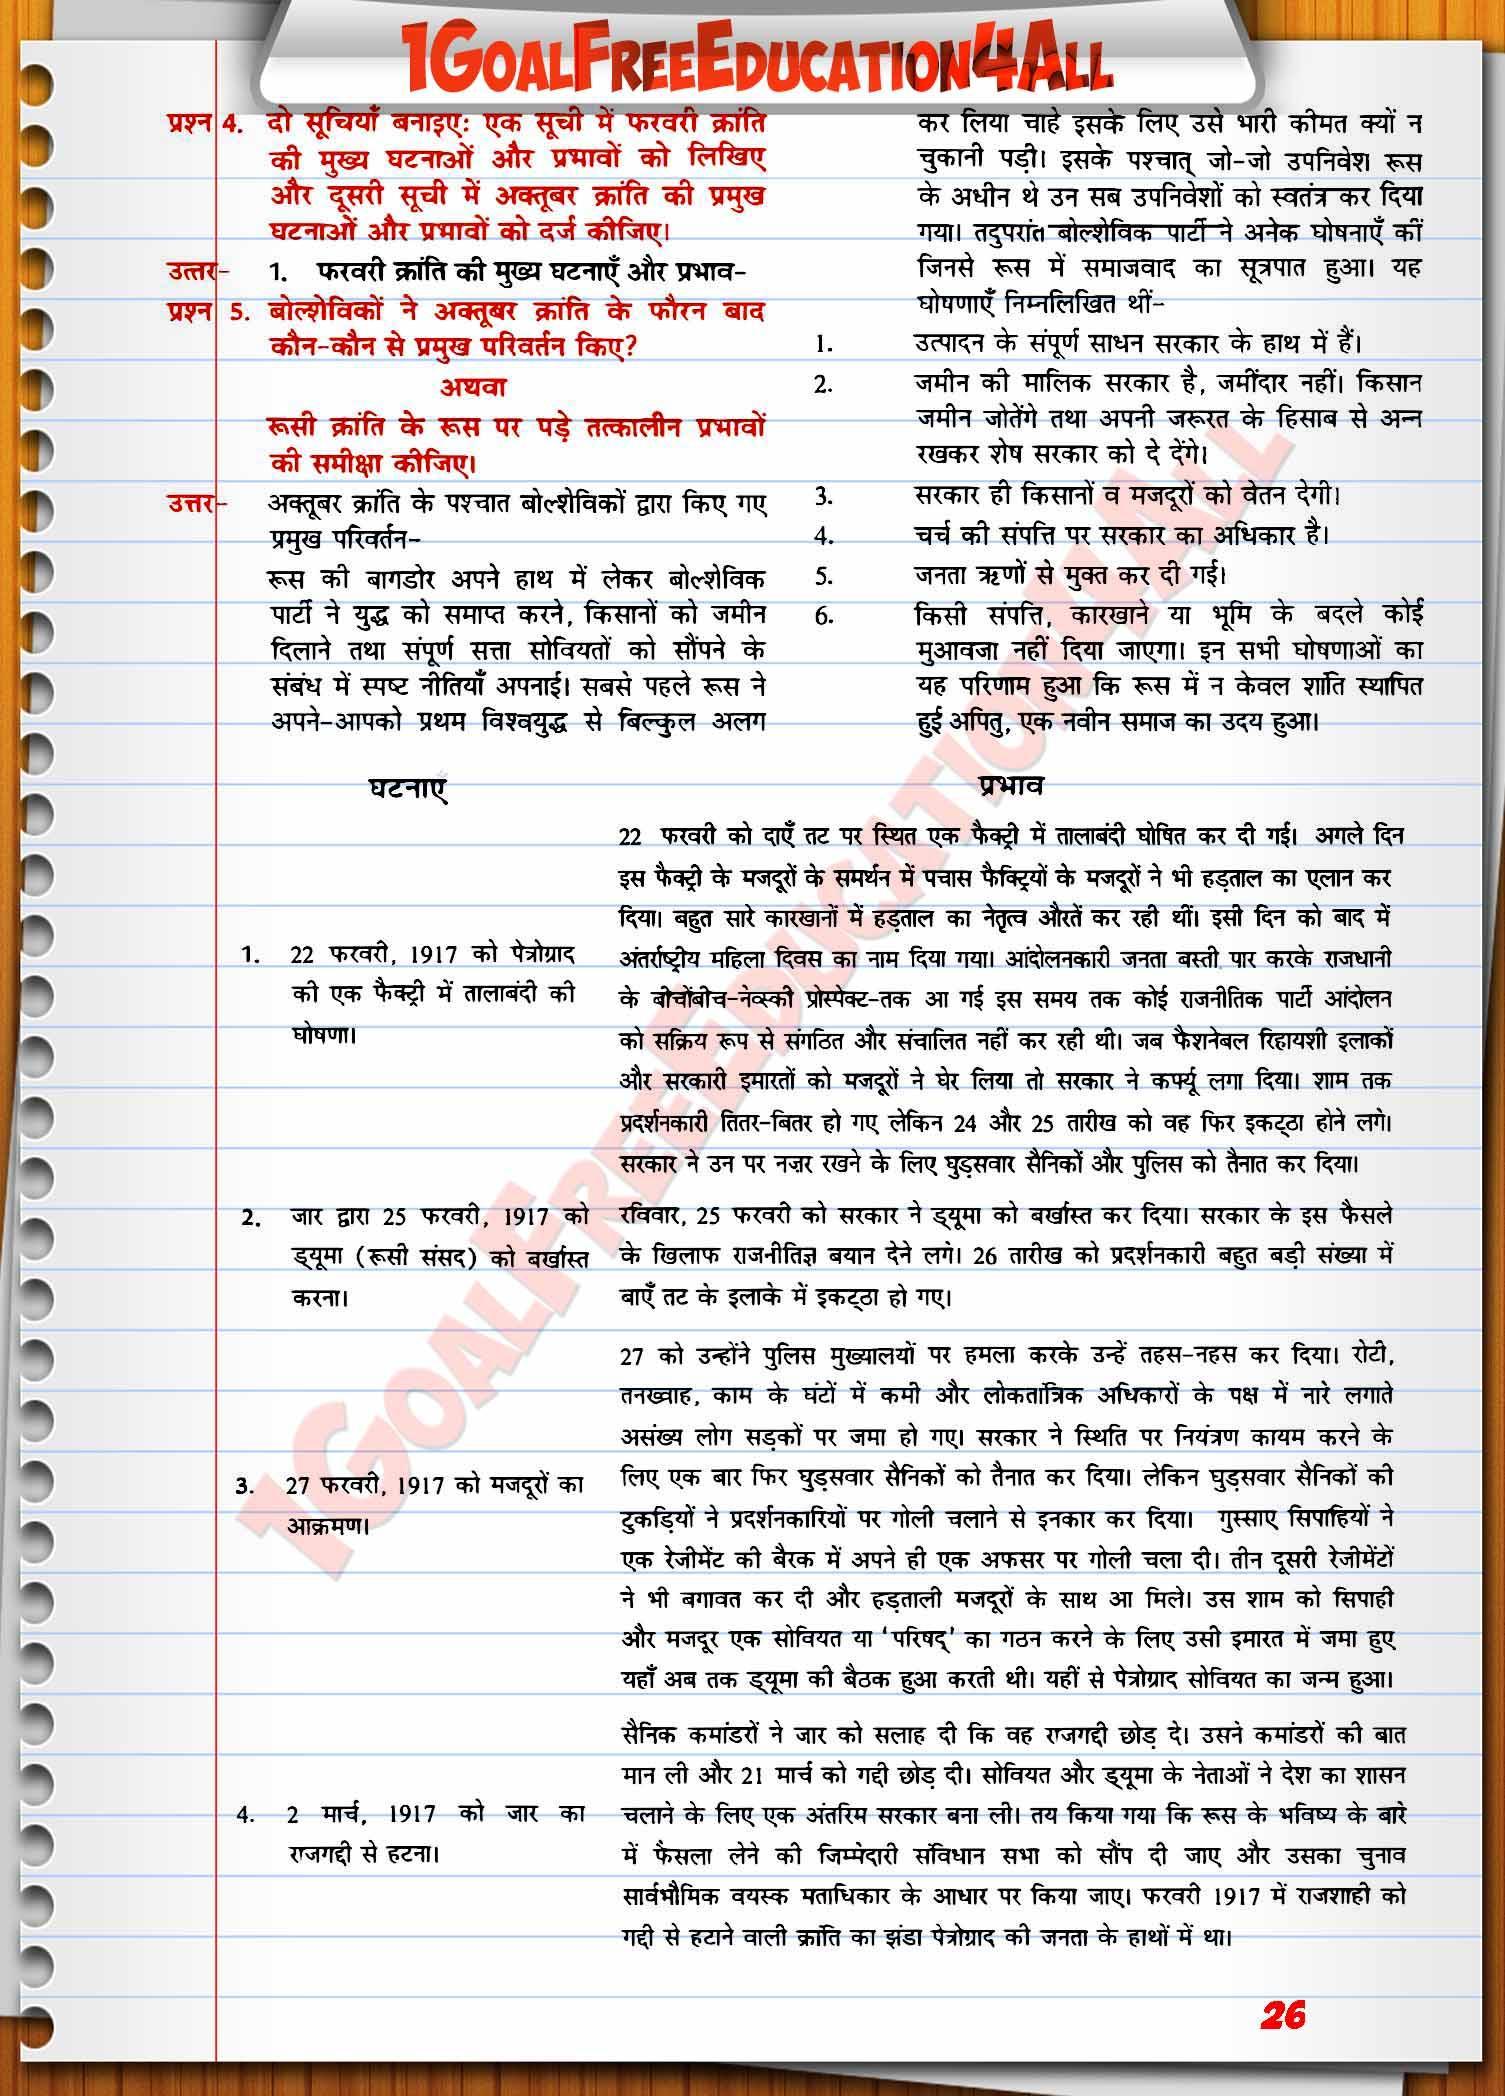 1GoalFreeEducation4All
प्रश्न 4. दो सूचियाँ बनाइएः एक सूची में फरवरी क्रांति
की मुख्य घटनाओं और प्रभावों को लिखिए
और दूसरी सूची में अक्तूबर क्रांति की प्रमुख
घटनाओं और प्रभावों को दर्ज कीजिए।
उत्तर- 1. फरवरी क्रांति की मुख्य घटनाएँ और प्रभाव-
प्रश्न 5. बोल्शेविकों ने अक्तूबर क्रांति के फौरन बाद
कौन-कौन से प्रमुख परिवर्तन किए?
अथवा
रूसी क्रांति के रूस पर पड़े तत्कालीन प्रभावों
की समीक्षा कीजिए।
उत्तर- अक्तूबर क्रांति के पश्चात बोल्शेविकों द्वारा किए गए
प्रमुख परिवर्तन-
रूस की बागडोर अपने हाथ में लेकर बोल्शेविक
पार्टी ने युद्ध को समाप्त करने, किसानों को जमीन
दिलाने तथा संपूर्ण सत्ता सोवियतों को सौंपने के
संबंध में स्पष्ट नीतियाँ अपनाई। सबसे पहले रूस ने
अपने-आपको प्रथम विश्वयुद्ध से बिल्कुल अलग
कर लिया चाहे इसके लिए उसे भारी कीमत क्यों न
चुकानी पड़ी। इसके पश्चात् जो-जो उपनिवेश रूस
के अधीन थे उन सब उपनिवेशों को स्वतंत्र कर दिया
गया। तदुपरांत बोल्शेविक पार्टी ने अनेक घोषनाएँ कीं
जिनसे रूस में समाजवाद का सूत्रपात हुआ। यह
घोषणाएँ निम्नलिखित थीं-
1. उत्पादन के संपूर्ण साधन सरकार के हाथ में हैं।
2. जमीन की मालिक सरकार है, जमींदार नहीं। किसान
जमीन जोतेंगे तथा अपनी जरूरत के हिसाब से अन्न
रखकर शेष सरकार को दे देंगे।
3. सरकार ही किसानों व मजदूरों को वेतन देगी।
4. चर्च की संपत्ति पर सरकार का अधिकार है।
5. जनता ऋणों से मुक्त कर दी गई।
6. किसी संपत्ति, कारखाने या भूमि के बदले कोई
मुआवजा नहीं दिया जाएगा। इन सभी घोषणाओं का
यह परिणाम हुआ कि रूस में न केवल शांति स्थापित
हुई अपितु, एक नवीन समाज का उदय हुआ।
घटनाए प्रभाव
1. 22 फरवरी, 1917 को पेत्रोग्राद
की एक फैक्ट्री में तालाबंदी की
घोषणा।
22 फरवरी को दाएँ तट पर स्थित एक फैक्ट्री में तालाबंदी घोषित कर दी गई। अगले दिन
इस फैक्ट्री के मजदूरों के समर्थन में पचास फैक्ट्रियों के मजदूरों ने भी हड़ताल का एलान कर
दिया। बहुत सारे कारखानों में हड़ताल का नेतृत्व औरतें कर रही थीं। इसी दिन को बाद में
अंतर्राष्ट्रीय महिला दिवस का नाम दिया गया। आंदोलनकारी जनता बस्ती पार करके राजधानी
के बीचोंबीच-नेव्स्की प्रोस्पेक्ट-तक आ गई इस समय तक कोई राजनीतिक पार्टी आंदोलन
को सक्रिय रूप से संगठित और संचालित नहीं कर रही थी। जब फैशनेबल रिहायशी इलाकों
और सरकारी इमारतों को मजदूरों ने घेर लिया तो सरकार ने कर्फ्यू लगा दिया। शाम तक
प्रदर्शनकारी तितर-बितर हो गए लेकिन 24 और 25 तारीख को वह फिर इकट्ठा होने लगे।
सरकार ने उन पर नजर रखने के लिए घुड़सवार सैनिकों और पुलिस को तैनात कर दिया।
2. जार द्वारा 25 फरवरी, 1917 को
ड्यूमा (रूसी संसद) को बर्खास्त
करना।
रविवार, 25 फरवरी को सरकार ने ड्यूमा को बर्खास्त कर दिया। सरकार के इस फैसले
के खिलाफ राजनीतिज्ञ बयान देने लगे। 26 तारीख को प्रदर्शनकारी बहुत बड़ी संख्या में
बाएँ तट के इलाके में इकट्ठा हो गए।
3. 27 फरवरी, 1917 को मजदूरों का
आक्रमण।
27 को उन्होंने पुलिस मुख्यालयों पर हमला करके उन्हें तहस-नहस कर दिया। रोटी,
तनख्वाह, काम के घंटों में कमी और लोकतांत्रिक अधिकारों के पक्ष में नारे लगाते
असंख्य लोग सड़कों पर जमा हो गए। सरकार ने स्थिति पर नियंत्रण कायम करने के
लिए एक बार फिर घुड़सवार सैनिकों को तैनात कर दिया। लेकिन घुड़सवार सैनिकों की
टुकड़ियों ने प्रदर्शनकारियों पर गोली चलाने से इनकार कर दिया। गुस्साए सिपाहियों ने
एक रेजीमेंट की बैरक में अपने ही एक अफसर पर गोली चला दी। तीन दूसरी रेजीमेंटों
ने भी बगावत कर दी और हड़ताली मजदूरों के साथ आ मिले। उस शाम को सिपाही
और मजदूर एक सोवियत या 'परिषद्' का गठन करने के लिए उसी इमारत में जमा हुए
यहाँ अब तक ड्यूमा की बैठक हुआ करती थी। यहीं से पेत्रोग्राद सोवियत का जन्म हुआ।
4. 2 मार्च, 1917 को जार का
राजगद्दी से हटना।
सैनिक कमांडरों ने जार को सलाह दी कि वह राजगद्दी छोड़ दे। उसने कमांडरों की बात
मान ली और 21 मार्च को गद्दी छोड़ दी। सोवियत और ड्यूमा के नेताओं ने देश का शासन
चलाने के लिए एक अंतरिम सरकार बना ली। तय किया गया कि रूस के भविष्य के बारे
में फैसला लेने की जिम्मेदारी संविधान सभा को सौंप दी जाए और उसका चुनाव
सार्वभौमिक वयस्क मताधिकार के आधार पर किया जाए। फरवरी 1917 में राजशाही को
गद्दी से हटाने वाली क्रांति का झंडा पेत्रोग्राद की जनता के हाथों में था।
1GoalFreeEducation4All
26